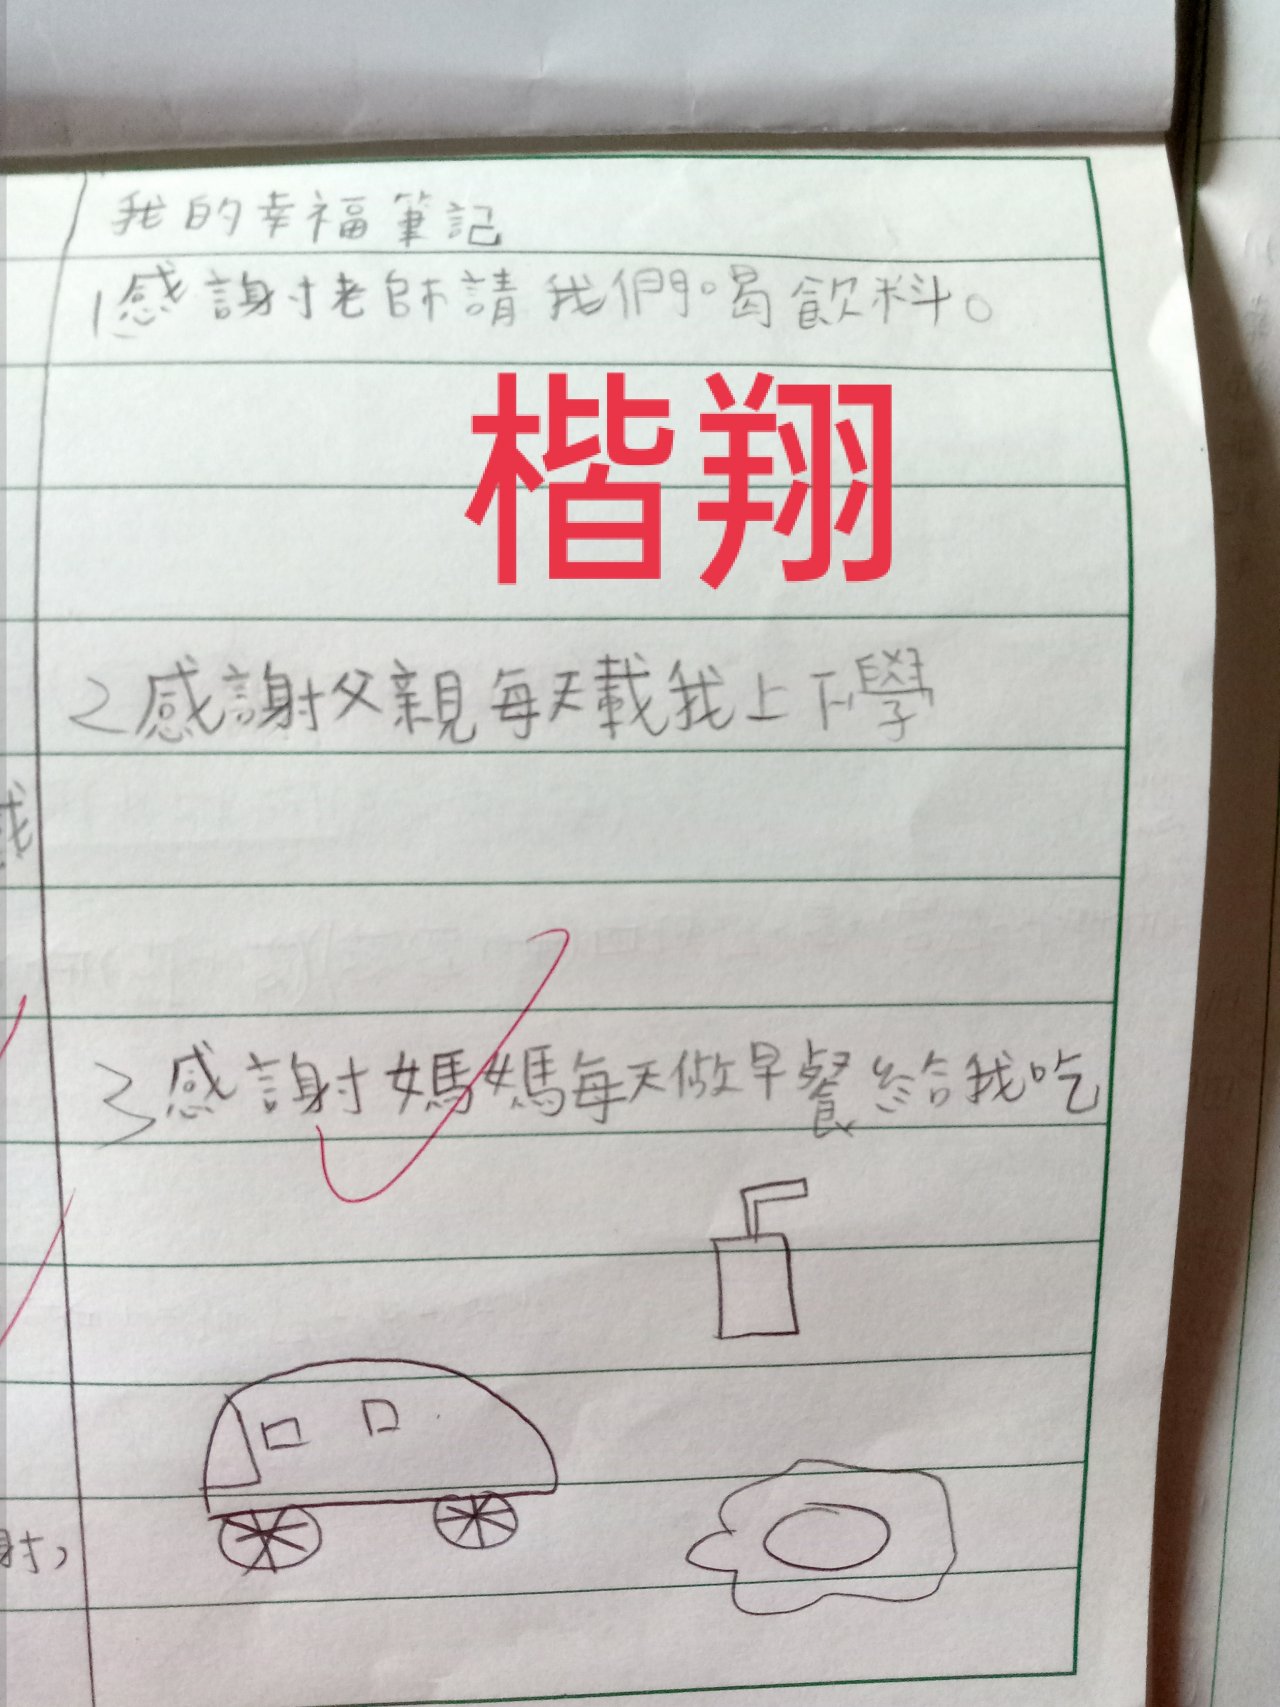 我的幸福筆記
1感謝老師請我們喝飲料。
楷翔
2感謝父親每天載我上下學
3感謝媽媽每天做早餐給我吃
我
射,